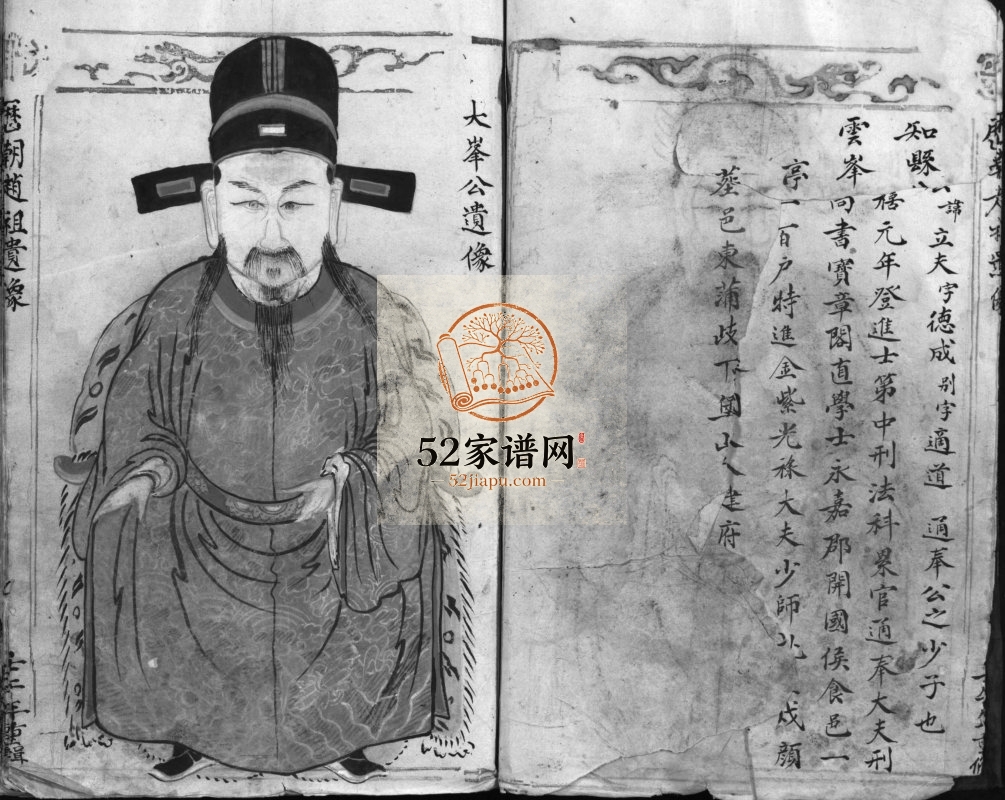 知縣公諱立夫字德成別字適道　通奉公之少子也
元年登進士第中刑法科累官通奉大夫刑
雲峯
向書寶章閣直學士永嘉郡開國侯食邑一
亭一百户特進金紫光祿大夫少師　戍顔
塟邑東蒲歧下　山　建府
大峯公遺像
歷朝趙祖遺像
年重輯
52家谱网
52jiapu.com